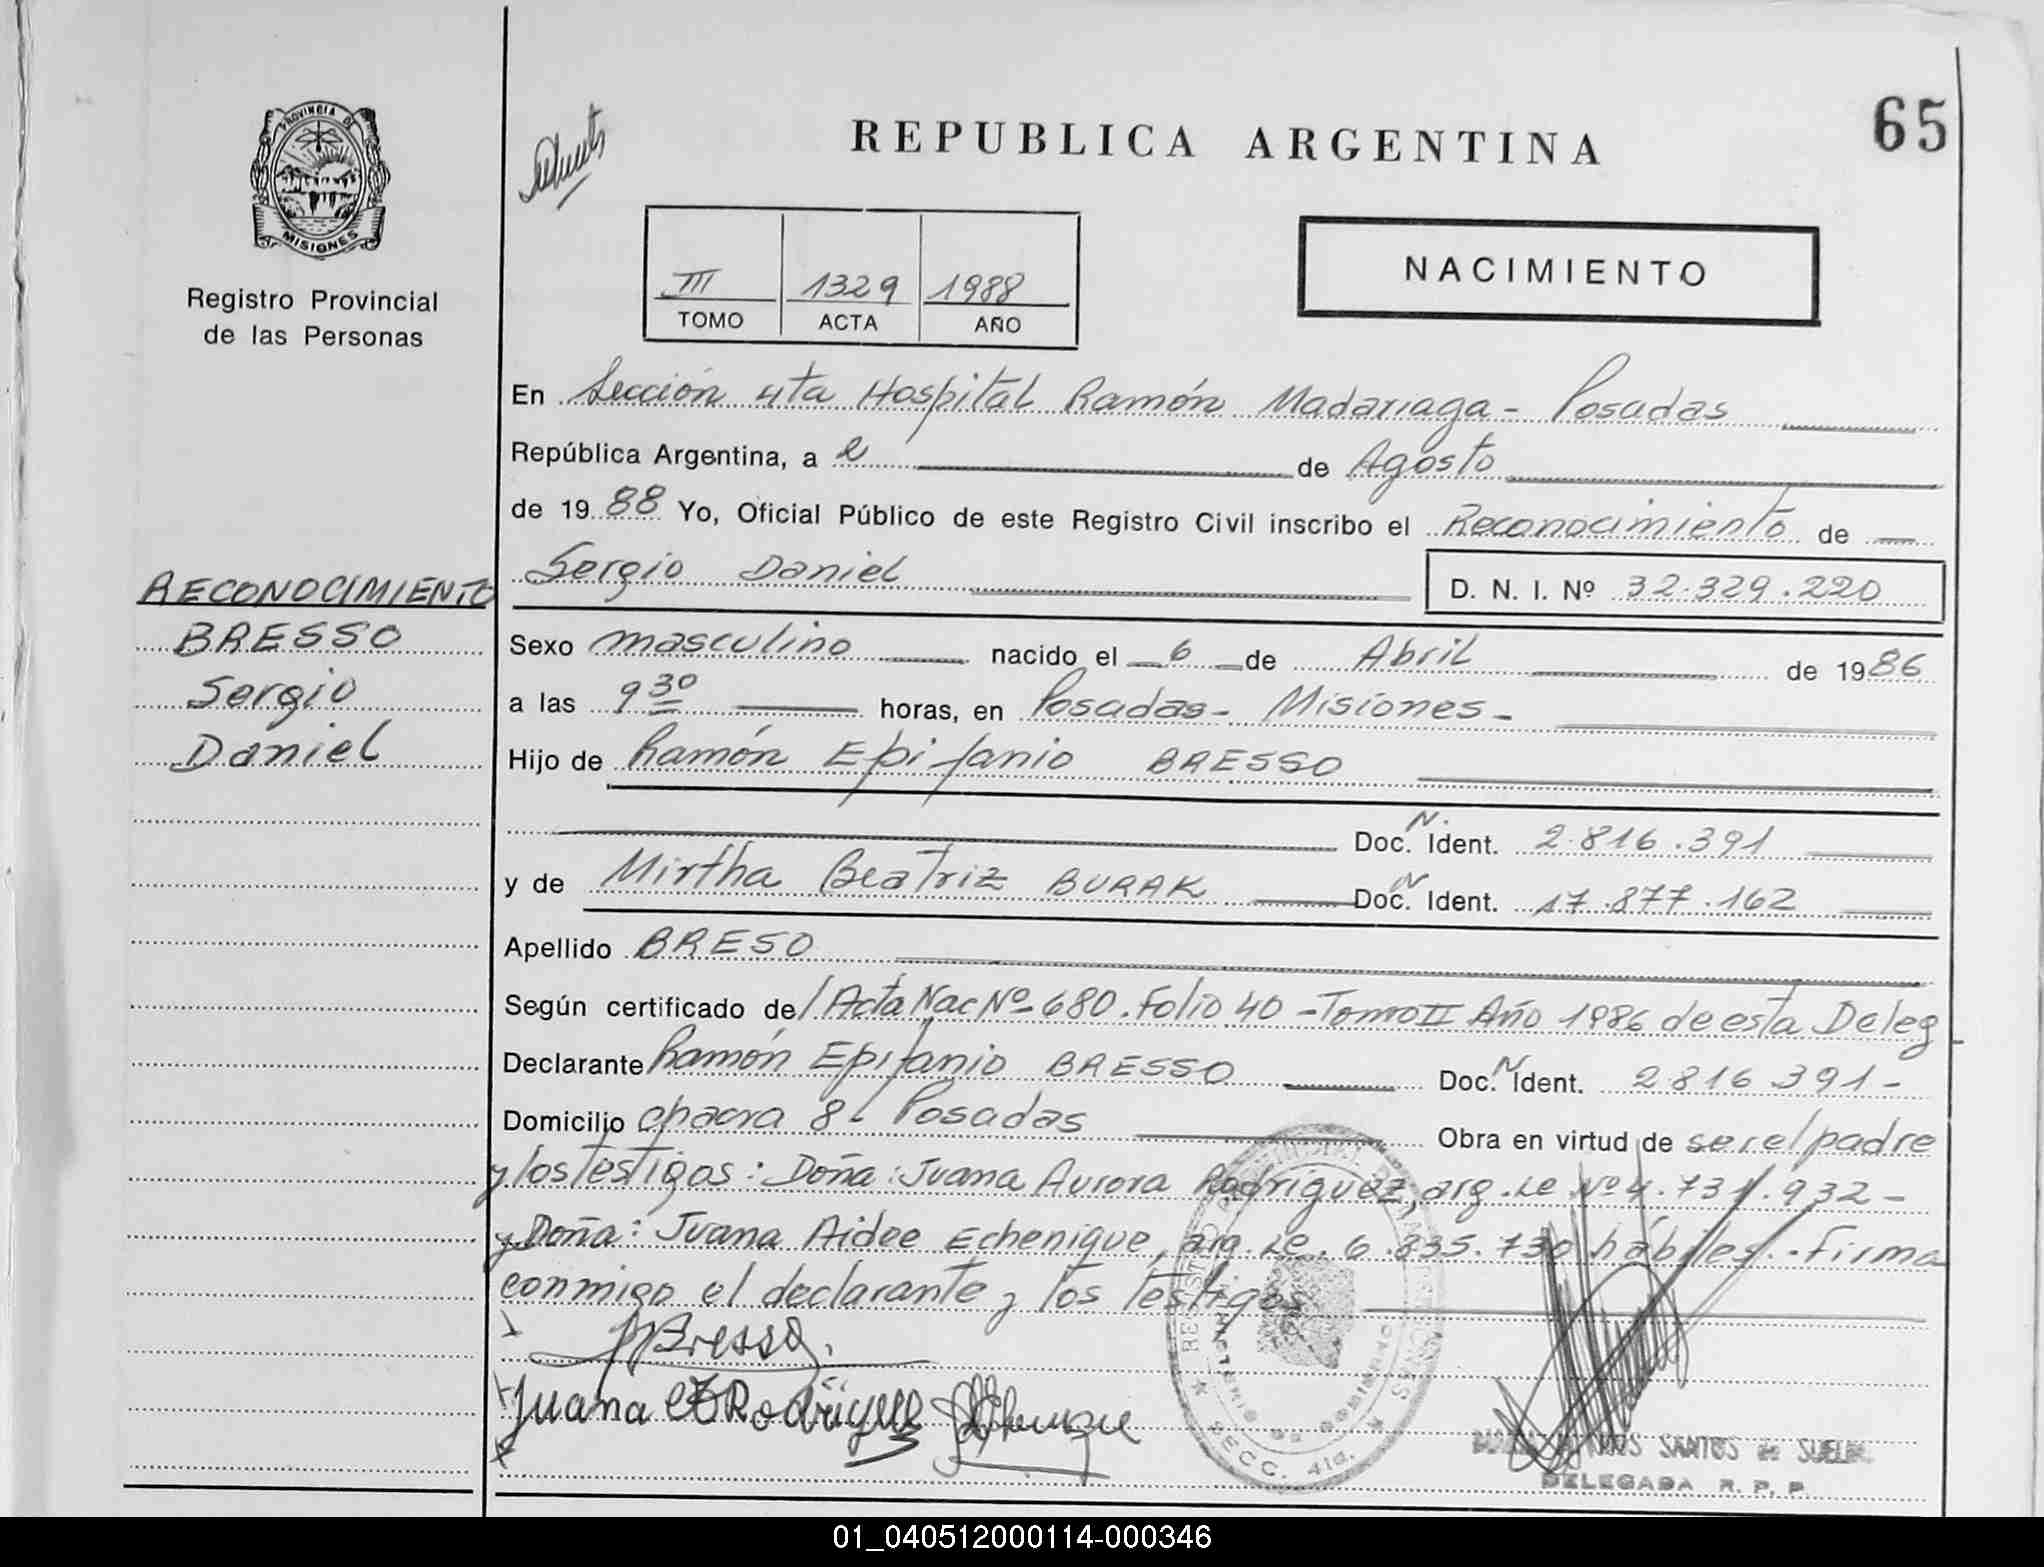 PROVINCIA DE
MISIONES
Registro Provincial
de las Personas
RECONOCIMIENTO
BRESSO
Sergio
Daniel
65
REPUBLICA ARGENTINA
NACIMIENTO
III 1329 1988
TOMO ACTA AÑO
En Sección 4ta Hospital Ramón Madariaga - Posadas
República Argentina, a 2 de Agosto
de 1988 Yo, Oficial Público de este Registro Civil inscribo el Reconocimiento de
Sergio Daniel D. N. I. Nº 32.329.220
Sexo masculino nacido el 6 de Abril de 1986
a las 9 30 horas, en Posadas - Misiones -
Hijo de Ramón Epifanio BRESSO
Doc. N. Ident. 2.816.391
y de Mirtha Beatriz BURAK Doc. N Ident. 17.877.162
Apellido BRESO
Según certificado de / Acta Nac Nº 680. Folio 40 - Tomo II Año 1986 de esta Deleg -
Declarante Ramón Epifanio BRESSO Doc. N Ident. 2816.391 -
Domicilio chacra 8 - Posadas Obra en virtud de ser el padre
y los testigos: Doña: Juana Aurora Rodriguez, arg. Le Nº 4.731.932 -
y Doña: Juana Aidee Echenique, arg. Le. 6.835.730 hábiles. - Firma
conmigo el declarante y los testigos
Bresso.
Juana Rodriguez
SANTOS de
DELEGADA R. P. P.
SECC. 4ta.
01_040512000114-000346